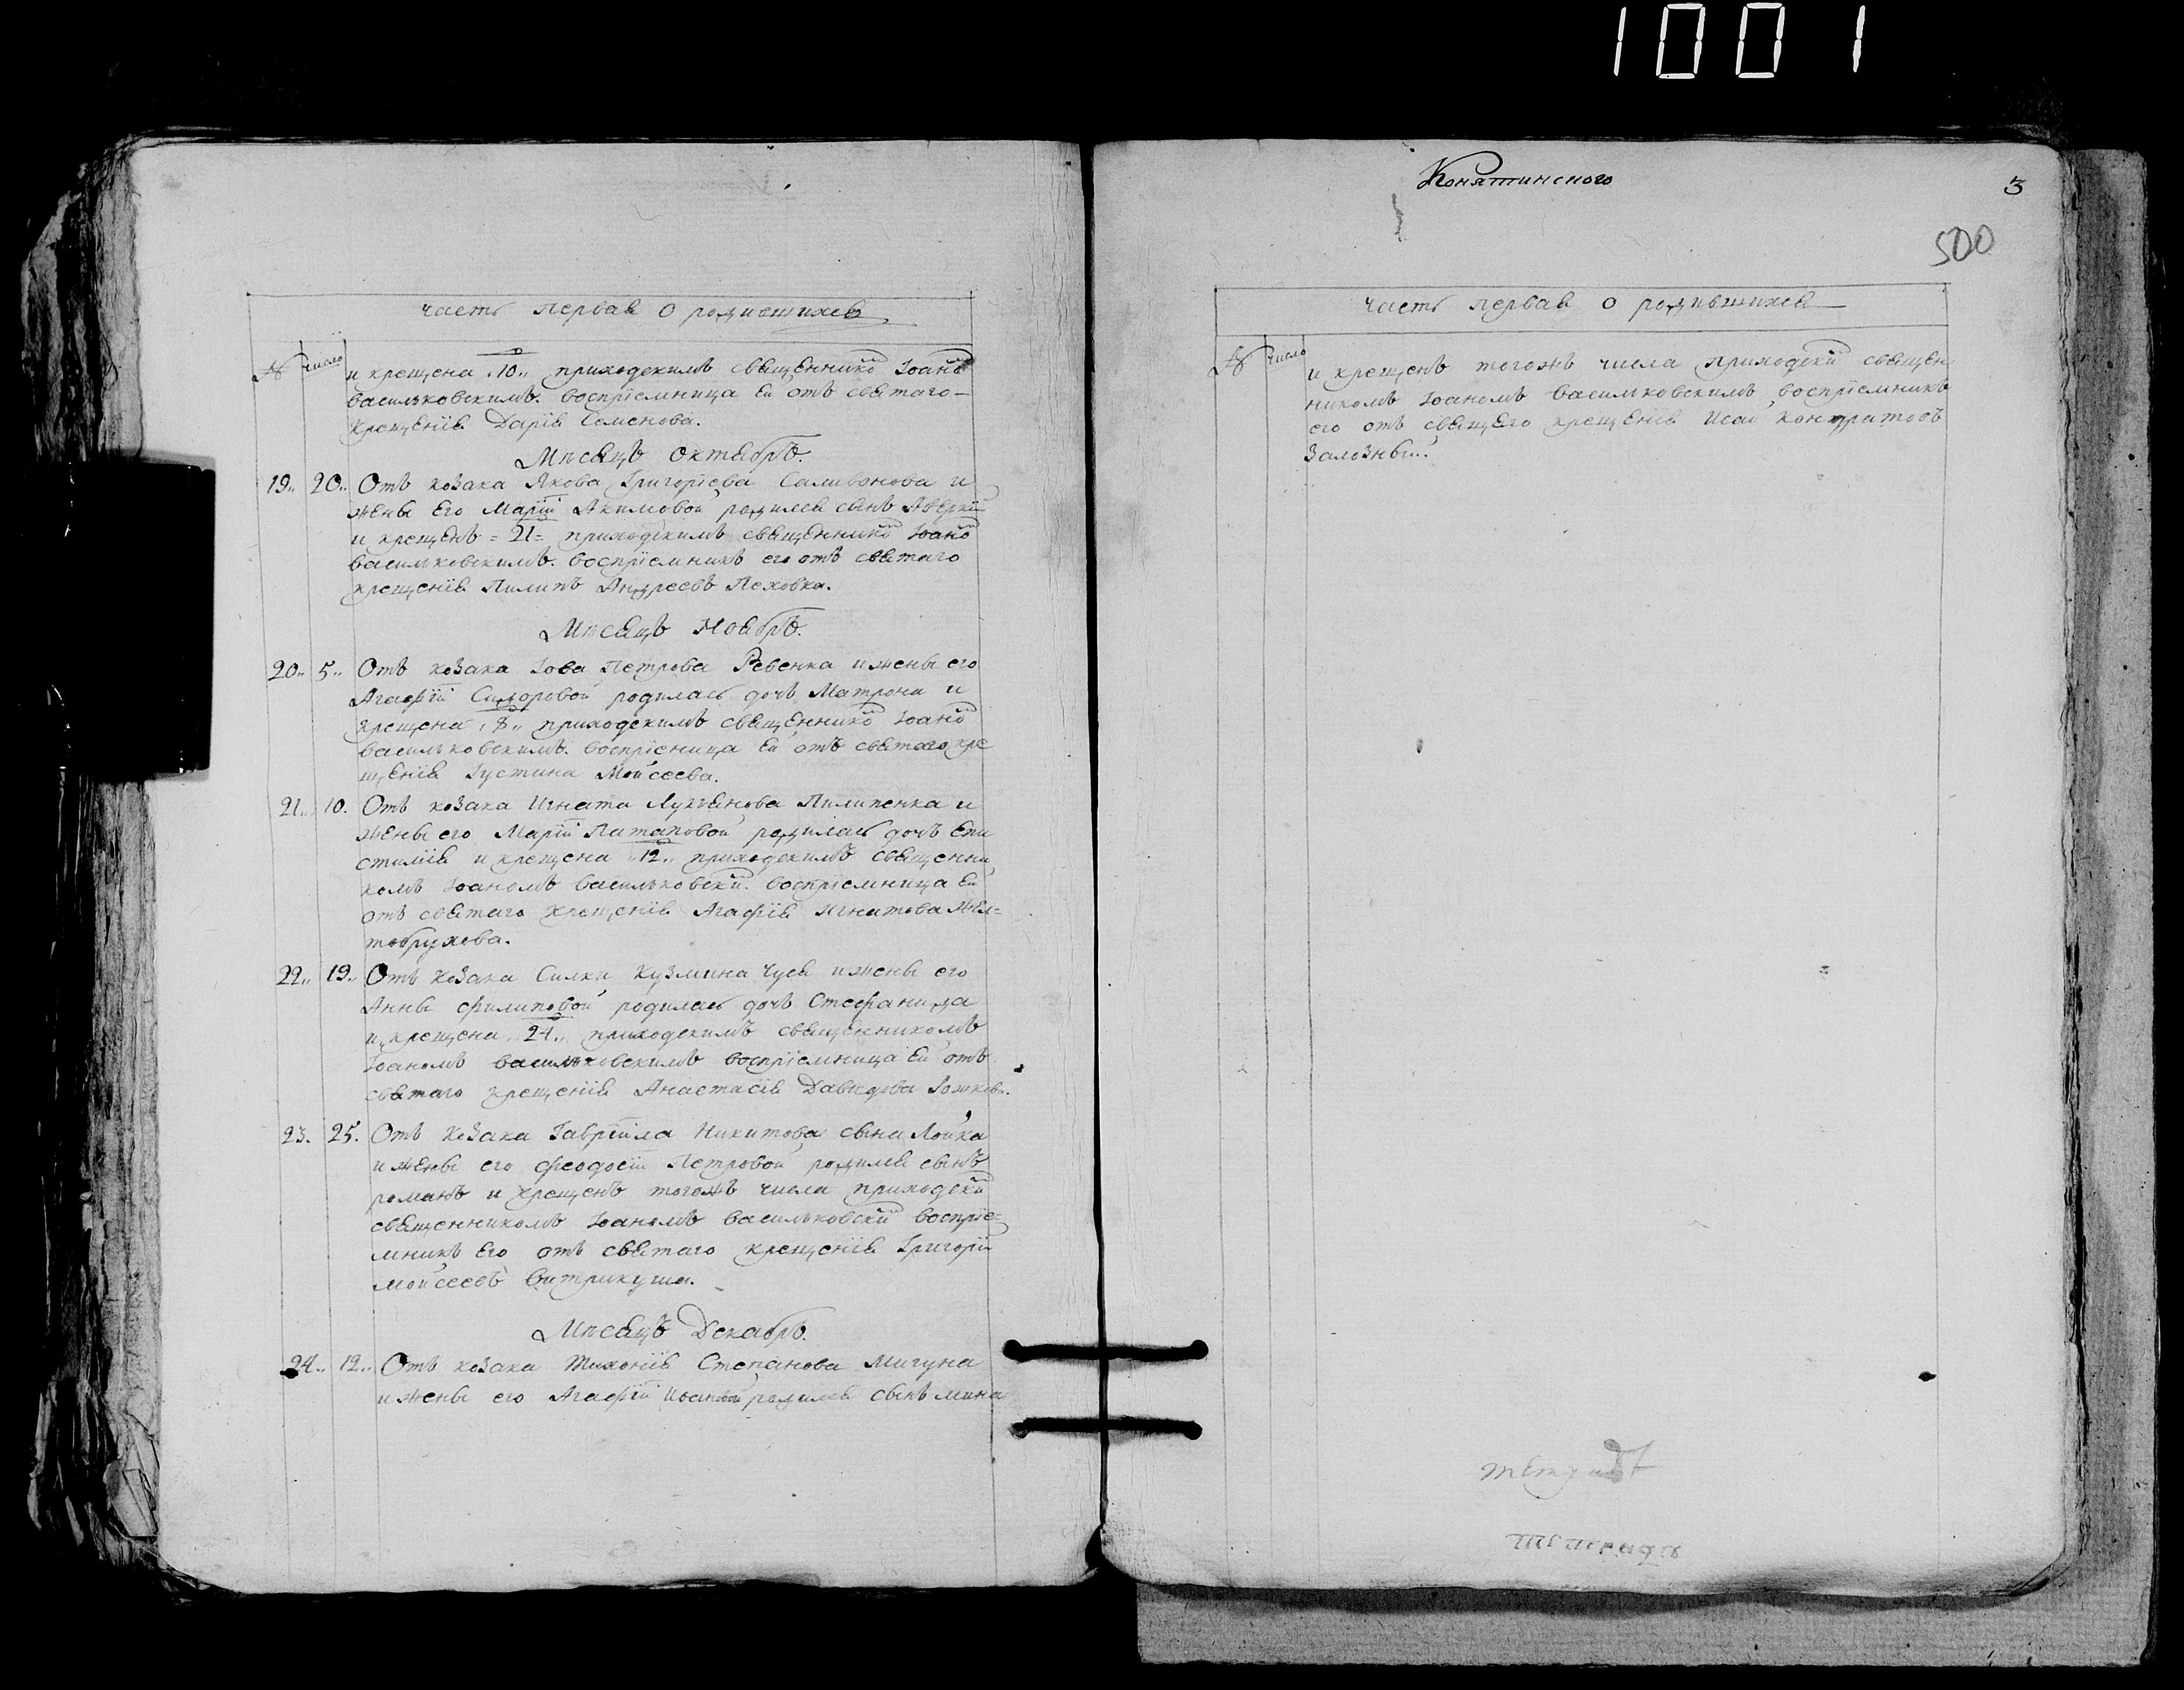 1001
часть первая о родившихся
№ число
и крещена 10 приходскимъ священнико Іоано
васильковскимъ. воспріемница ей отъ святаго
крещенія Дарія Семенова.
Мѣсяцъ Октябрь.
19 20 Отъ козака Якова Григоріева Саливонова и
жены Его Маріи Акимовой родился сынъ Аверкій
и крещенъ 21 приходскимъ священнико Іоано
васильковскимъ. воспріемникъ его отъ святаго
крещенія Пилипъ Андреевъ Пеховка.
Мѣсяцъ Ноябрь.
20 5 Отъ козака Іова Петрова Ревенка и жены его
Агафіи Сидоровой родилась дочь Матрона и
крещена 8 приходскимъ священнико Іоано
васильковскимъ. воспріеница ей отъ святаго кре
щенія Іустина Моисеева.
21 10. Отъ козака Игната Лукьянова Пилипенка и
жены его Маріи Патаповой родилась дочь Епи
стимія и крещена 12 приходскимъ священни
комъ Іоаномъ васильковски. воспріемница Ей
отъ святаго крещенія Агафія Игнатова Жел=
тобрухова.
22 19 Отъ козака Силки Кузмина Чуея и жены его
Анны филиповой родилась дочь Стефанида
и крещена 24 приходскимъ священникомъ
Іоаномъ васильковскимъ воспріемница ей отъ
святаго крещенія Анастасія Давидова
23. 25. Отъ козака Гавріила Никитова сына Лойка
и жены его феодосіи Петровой родился сынъ
романъ и крещенъ тогожъ числа приходски
священникомъ Іоаномъ васильковски воспріе=
мникъ Его отъ святаго крещенія Григорій
моисеевъ витрикуша.
Мѣсяцъ Декабрь.
24 12 Отъ козака Тихонія Степанова Мигуна
и жены его Агафіи Ивановой родился сынъ мина
Конятинского
3
500
часть первая о родившихся
№ число
и крещенъ тогожъ числа приходскй священ
никомъ Іоаномъ васильковскимъ воспріемникъ
его отъ свящего крещенія Исай Кондратовъ
Зализный.